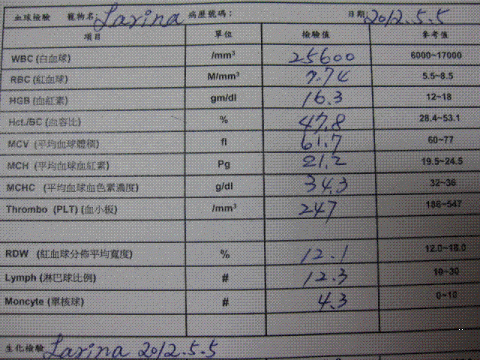 血球檢驗 寵物名: Larina 病歷號碼: 日期 2012.5.5
項目 單位 檢驗值 參考值
WBC (白血球) /mm³ 25600 6000~17000
RBC (紅血球) M/mm³ 7.74 5.5~8.5
HGB (血紅素) gm/dl 16.3 12~18
Hct./BC (血容比) % 47.8 28.4~53.1
MCV (平均血球體積) fl 61.7 60~77
MCH (平均血球血紅素) Pg 21.2 19.5~24.5
MCHC (平均血球血色素濃度) g/dl 34.3 32~36
Thrombo (PLT) (血小板) /mm³ 247 186~547
RDW (紅血球分佈平均寬度) % 12.1 12.0~18.0
Lymph (淋巴球比例) # 12.3 10~30
Moncyte (單核球) # 4.3 0~10
生化檢驗 Larina 2012.5.5